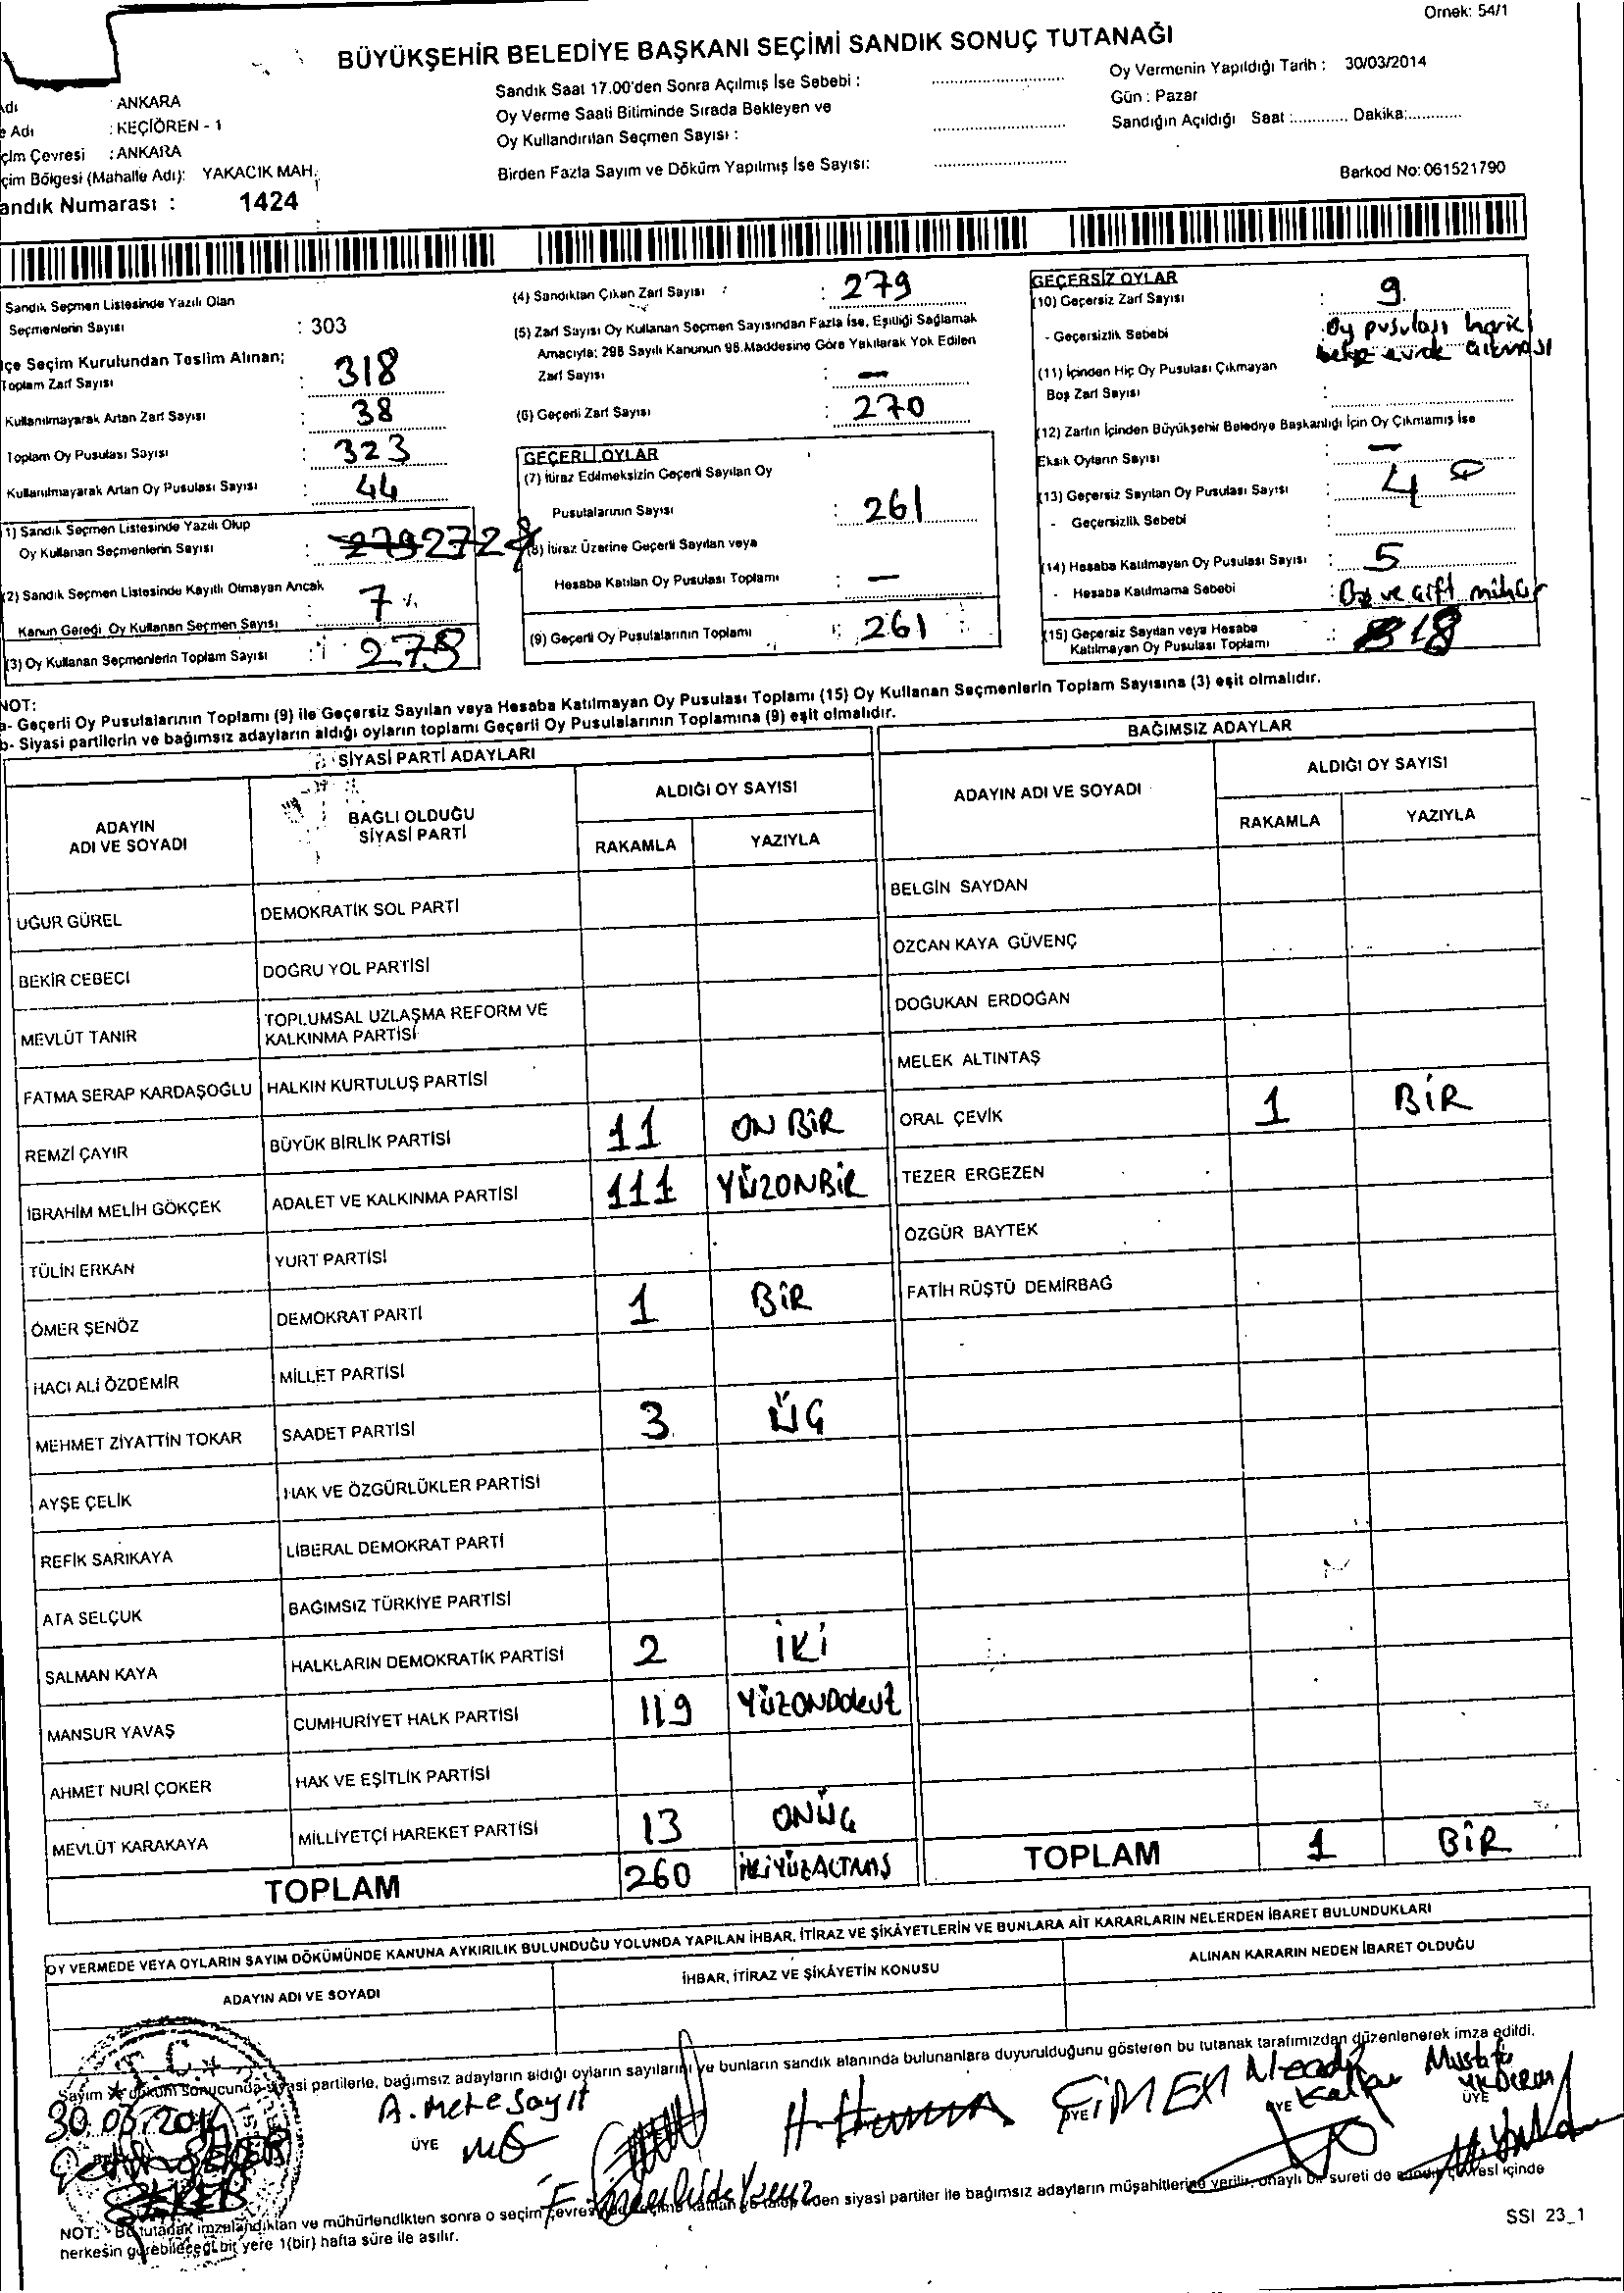 Örnek: 54/1
BÜYÜKŞEHİR BELEDİYE BAŞKANI SEÇİMİ SANDIK SONUÇ TUTANAĞI
Adı : ANKARA
Adı : KEÇİÖREN - 1
çim Çevresi : ANKARA
çim Bölgesi (Mahalle Adı): YAKACIK MAH.
andık Numarası : 1424
Sandık Saat 17.00'den Sonra Açılmış İse Sebebi :
Oy Verme Saati Bitiminde Sırada Bekleyen ve
Oy Kullandırılan Seçmen Sayısı :
Birden Fazla Sayım ve Döküm Yapılmış İse Sayısı:
Oy Vermenin Yapıldığı Tarih : 30/03/2014
Gün : Pazar
Sandığın Açıldığı Saat :............ Dakika:............
Barkod No: 061521790
Sandık Seçmen Listesinde Yazılı Olan
Seçmenlerin Sayısı : 303
lçe Seçim Kurulundan Teslim Alınan;
Toplam Zarf Sayısı : 318
Kullanılmayarak Artan Zarf Sayısı : 38
Toplam Oy Pusulası Sayısı : 323
Kullanılmayarak Artan Oy Pusulası Sayısı : 44
(1) Sandık Seçmen Listesinde Yazılı Olup
Oy Kullanan Seçmenlerin Sayısı :
(2) Sandık Seçmen Listesinde Kayıtlı Olmayan Ancak
Kanun Gereği Oy Kullanan Seçmen Sayısı : 7
(3) Oy Kullanan Seçmenlerin Toplam Sayısı :
(4) Sandıktan Çıkan Zarf Sayısı : 279
(5) Zarf Sayısı Oy Kullanan Seçmen Sayısından Fazla İse, Eşitliği Sağlamak
Amacıyla; 298 Sayılı Kanunun 98.Maddesine Göre Yakılarak Yok Edilen
Zarf Sayısı : —
(6) Geçerli Zarf Sayısı : 270
GEÇERLİ OYLAR
(7) İtiraz Edilmeksizin Geçerli Sayılan Oy
Pusulalarının Sayısı : 261
(8) İtiraz Üzerine Geçerli Sayılan veya
Hesaba Katılan Oy Pusulası Toplamı : —
(9) Geçerli Oy Pusulalarının Toplamı : 261
GEÇERSİZ OYLAR
(10) Geçersiz Zarf Sayısı : 9
- Geçersizlik Sebebi : Oy pusulası hariç
başka evrak çıkması
(11) İçinden Hiç Oy Pusulası Çıkmayan
Boş Zarf Sayısı :
(12) Zarfın İçinden Büyükşehir Belediye Başkanlığı İçin Oy Çıkmamış İse
Eksik Oyların Sayısı : —
(13) Geçersiz Sayılan Oy Pusulası Sayısı : 4
- Geçersizlik Sebebi :
(14) Hesaba Katılmayan Oy Pusulası Sayısı : 5
- Hesaba Katılmama Sebebi : Boş ve çift mühür
(15) Geçersiz Sayılan veya Hesaba
Katılmayan Oy Pusulası Toplamı :
NOT:
a- Geçerli Oy Pusulalarının Toplamı (9) ile Geçersiz Sayılan veya Hesaba Katılmayan Oy Pusulası Toplamı (15) Oy Kullanan Seçmenlerin Toplam Sayısına (3) eşit olmalıdır.
b- Siyasi partilerin ve bağımsız adayların aldığı oyların toplamı Geçerli Oy Pusulalarının Toplamına (9) eşit olmalıdır.
SİYASİ PARTİ ADAYLARI
ADAYIN ADI VE SOYADI BAĞLI OLDUĞU SİYASİ PARTİ ALDIĞI OY SAYISI
RAKAMLA YAZIYLA
UĞUR GÜREL DEMOKRATİK SOL PARTİ
BEKİR CEBECİ DOĞRU YOL PARTİSİ
MEVLÜT TANIR TOPLUMSAL UZLAŞMA REFORM VE KALKINMA PARTİSİ
FATMA SERAP KARDAŞOĞLU HALKIN KURTULUŞ PARTİSİ
REMZİ ÇAYIR BÜYÜK BİRLİK PARTİSİ 11 ON BİR
İBRAHİM MELİH GÖKÇEK ADALET VE KALKINMA PARTİSİ 111 YÜZONBİR
TÜLİN ERKAN YURT PARTİSİ
ÖMER ŞENÖZ DEMOKRAT PARTİ 1 BİR
HACI ALİ ÖZDEMİR MİLLET PARTİSİ
MEHMET ZİYATTİN TOKAR SAADET PARTİSİ 3 ÜÇ
AYŞE ÇELİK HAK VE ÖZGÜRLÜKLER PARTİSİ
REFİK SARIKAYA LİBERAL DEMOKRAT PARTİ
ATA SELÇUK BAĞIMSIZ TÜRKİYE PARTİSİ
SALMAN KAYA HALKLARIN DEMOKRATİK PARTİSİ 2 İKİ
MANSUR YAVAŞ CUMHURİYET HALK PARTİSİ 119 YÜZONDOKUZ
AHMET NURİ ÇOKER HAK VE EŞİTLİK PARTİSİ
MEVLÜT KARAKAYA MİLLİYETÇİ HAREKET PARTİSİ 13 ONÜÇ
TOPLAM 260 İKİYÜZALTMIŞ
BAĞIMSIZ ADAYLAR
ADAYIN ADI VE SOYADI ALDIĞI OY SAYISI
RAKAMLA YAZIYLA
BELGİN SAYDAN
ÖZCAN KAYA GÜVENÇ
DOĞUKAN ERDOĞAN
MELEK ALTINTAŞ
ORAL ÇEVİK 1 BİR
TEZER ERGEZEN
ÖZGÜR BAYTEK
FATİH RÜŞTÜ DEMİRBAĞ
TOPLAM 1 BİR
OY VERMEDE VEYA OYLARIN SAYIM DÖKÜMÜNDE KANUNA AYKIRILIK BULUNDUĞU YOLUNDA YAPILAN İHBAR, İTİRAZ VE ŞİKÂYETLERİN VE BUNLARA AİT KARARLARIN NELERDEN İBARET BULUNDUKLARI
ADAYIN ADI VE SOYADI İHBAR, İTİRAZ VE ŞİKÂYETİN KONUSU ALINAN KARARIN NEDEN İBARET OLDUĞU
T.C.
Sayım ve döküm sonucunda siyasi partilerle, bağımsız adayların aldığı oyların sayılarını ve bunların sandık alanında bulunanlara duyurulduğunu gösteren bu tutanak tarafımızdan düzenlenerek imza edildi.
30.03.2014
A. Mete Sayıt
ÜYE
ÇİMEN
ÜYE
ÜYE
Mustafa
ÜYE
NOT: Bu tutanak imzalandıktan ve mühürlendikten sonra o seçim çevresinde seçime katılan ve talep eden siyasi partiler ile bağımsız adayların müşahitlerine verilir, onaylı bir sureti de sandık çevresi içinde
herkesin görebileceği bir yere 1(bir) hafta süre ile asılır.
SSI 23_1